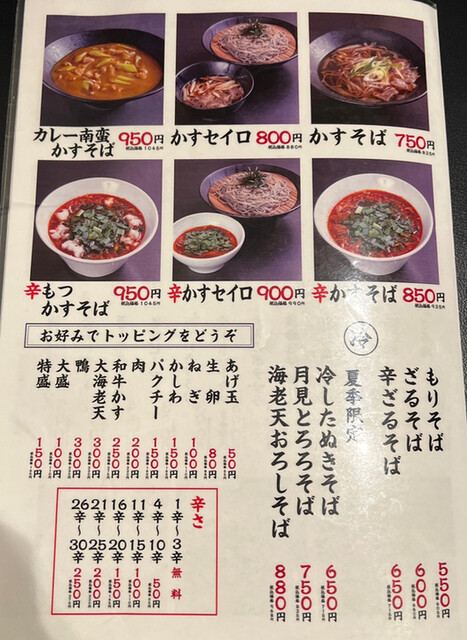 カレー南蛮かすそば 950円
税込価格 1045円
かすセイロ 800円
税込価格 880円
かすそば 750円
税込価格 825円
辛もつかすそば 950円
税込価格 1045円
辛かすセイロ 900円
税込価格 990円
辛かすそば 850円
税込価格 935円
お好みでトッピングをどうぞ
あげ玉 50円
生卵 80円
ねぎ 100円
かしわ 150円
パクチー 150円
肉 200円
和牛かす 250円
大海老天 300円
鴨 300円
大盛 100円
特盛 150円
辛さ
1辛〜3辛 無料
4辛〜10辛 50円
11辛〜15辛 100円
16辛〜20辛 150円
21辛〜25辛 200円
26辛〜30辛 250円
冷
もりそば 550円
ざるそば 600円
辛ざるそば 650円
夏季限定
冷したぬきそば 650円
月見とろろそば 750円
海老天おろしそば 880円